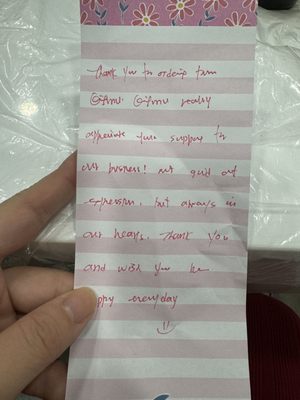 Thank you for ordering from
really
appreciate your support for
our business! not good at
expression, but always in
our hearts. Thank you
and wish you be
appy everyday